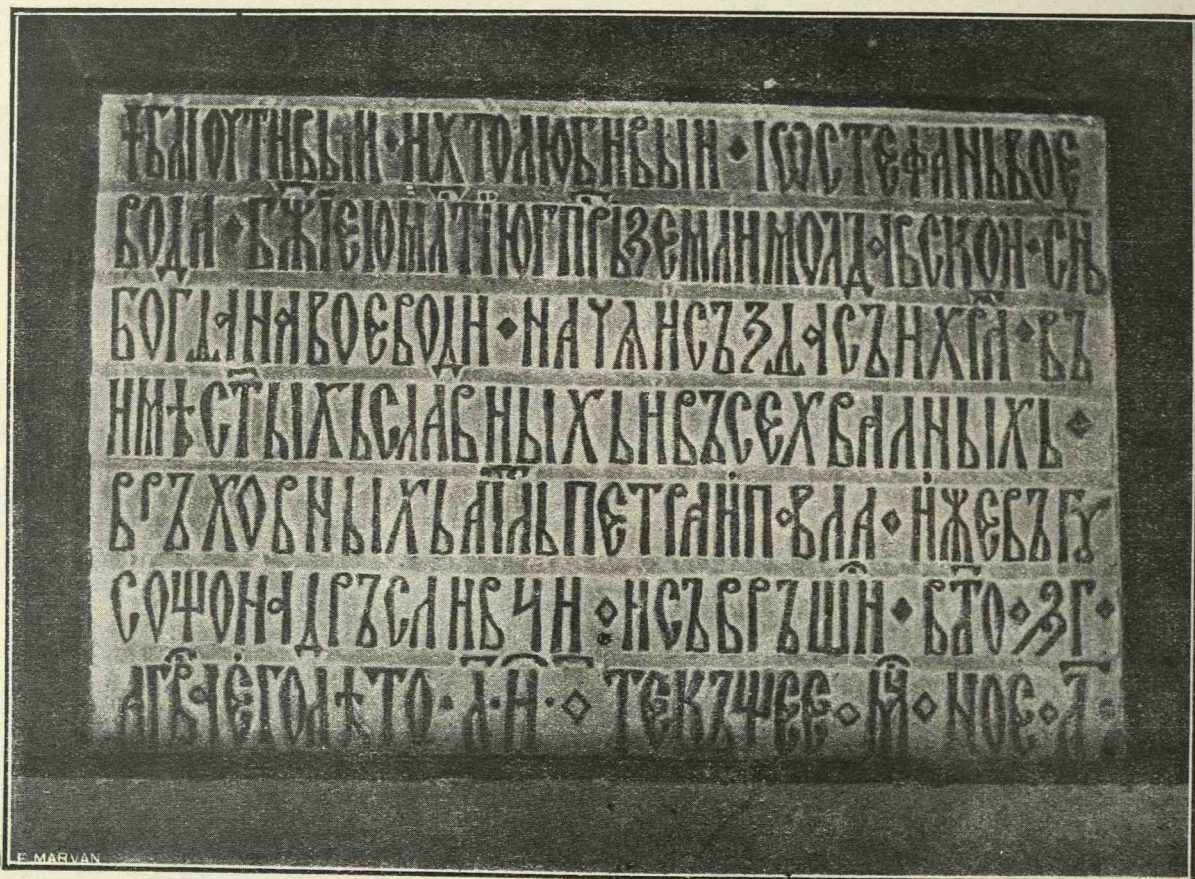 † БЛГОЧТИВЫИ · И ХТОЛЮБИВЫИ · ІѠ СТЕФАНЬ ВОЕ
ВОДА · БЖІЕЮ МЛТІЮ ГПРЬ ЗЕМЛИ МОЛДАВСКОИ · СНЬ
БОГДАНА ВОЕВОДИ · НАЧѦ И СЪЗДА СЪИ ХРА · ВЪ
ИМѢ СТЫХЬ СЛАВНЫХЬ И ВЪСЕХВАЛНЫХЬ ·
ВРЪХОВНЫХЬ АПЛЬ ПЕТРА И ПАВЛА · ИЖЕ ВЪ ГУ
СОХ НА ДРЪСЛИВЧИ · И СЪВРЪШИ · В ЛТО · ЗГ ·
А ГВА ЕГО ЛѢТО · Л · И · ТЕКЪЩЕЕ · М · НОЕ · Л ·
E. MARVAN